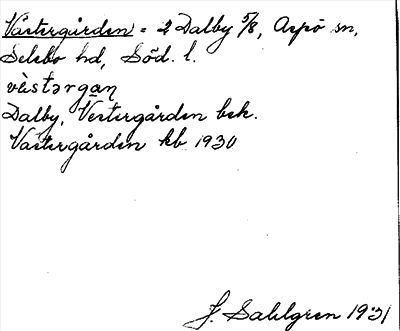 Västergården = 2 Dalby 5/8, Aspö sn,
Selebo hd, Söd. l.
vèstərgaɳ
Dalby, Vestergården bek.
Västergården kb 1930
J. Sahlgren 1931